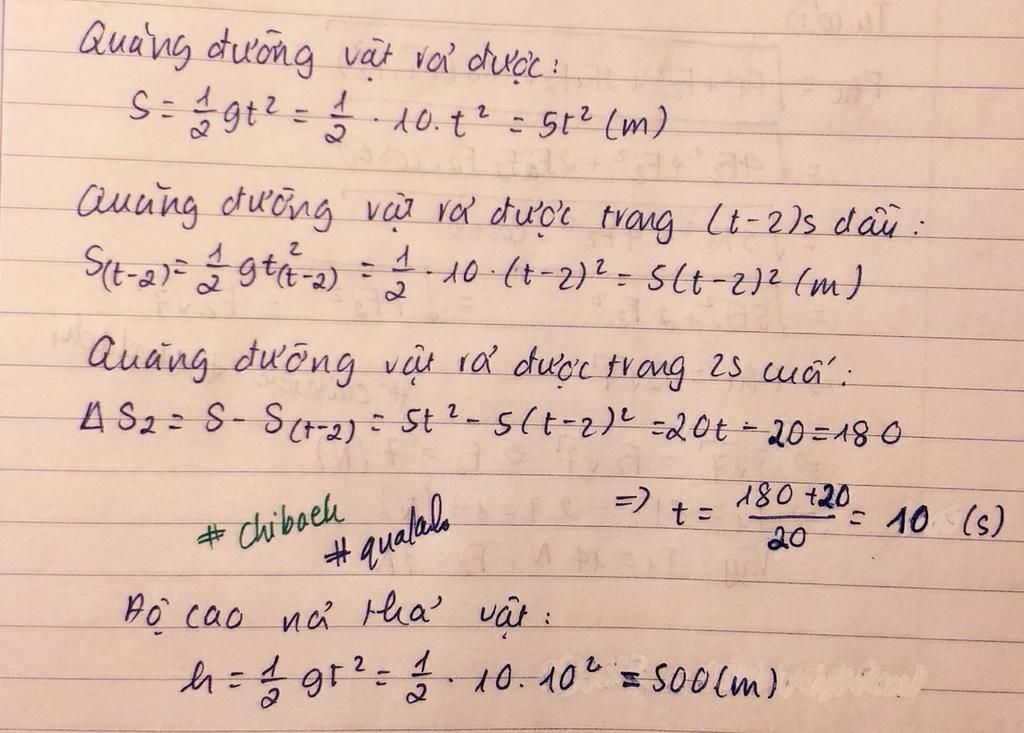 Quãng đường vật rơi được:
S = 1/2 gt² = 1/2 · 10. t² = 5t² (m)
Quãng đường vật rơi được trong (t-2)s đầu:
S(t-2) = 1/2 gt²(t-2) = 1/2 · 10 · (t-2)² = 5(t-2)² (m)
Quãng đường vật rơi được trong 2s cuối:
ΔS₂ = S - S(t-2) = 5t² - 5(t-2)² = 20t - 20 = 180
=> t = (180 + 20)/20 = 10 (s)
# chibaeh
# qualalo
Độ cao nơi thả vật:
h = 1/2 gt² = 1/2 · 10. 10² = 500 (m)